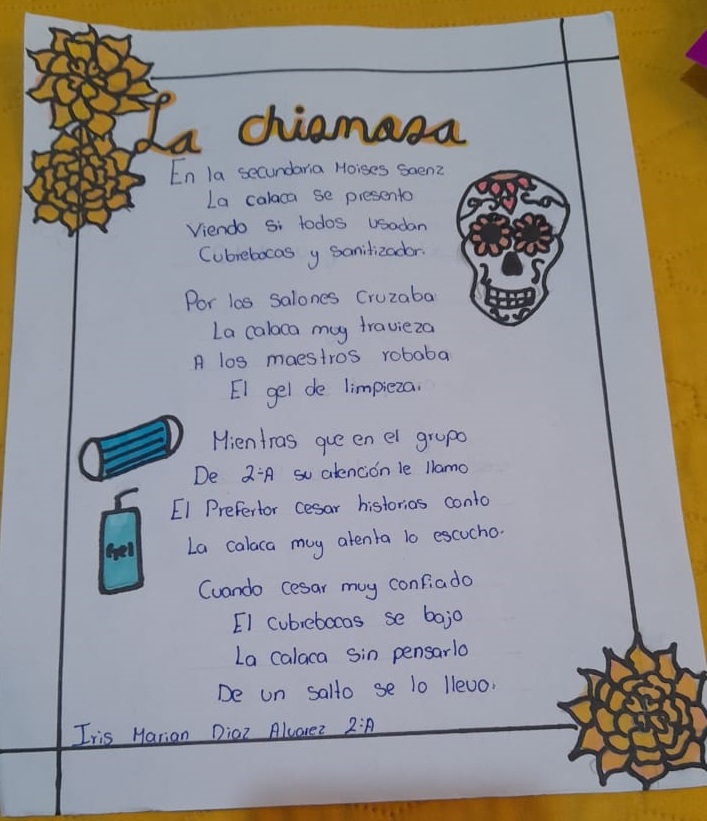 La chismosa
En la secundaria Moises Saenz
La calaca se presento
Viendo si todos usadan
Cubrebocas y sanitizador.
Por los salones cruzaba
La calaca muy travieza
A los maestros robaba
El gel de limpieza.
Mientras que en el grupo
De 2-A su atención le llamo
El Prefertor cesar historias conto
La calaca muy atenta lo escucho.
Gel
Cuando cesar muy confiado
El cubrebocas se bajo
La calaca sin pensarlo
De un salto se lo llevo.
Iris Marian Diaz Alvarez 2:A